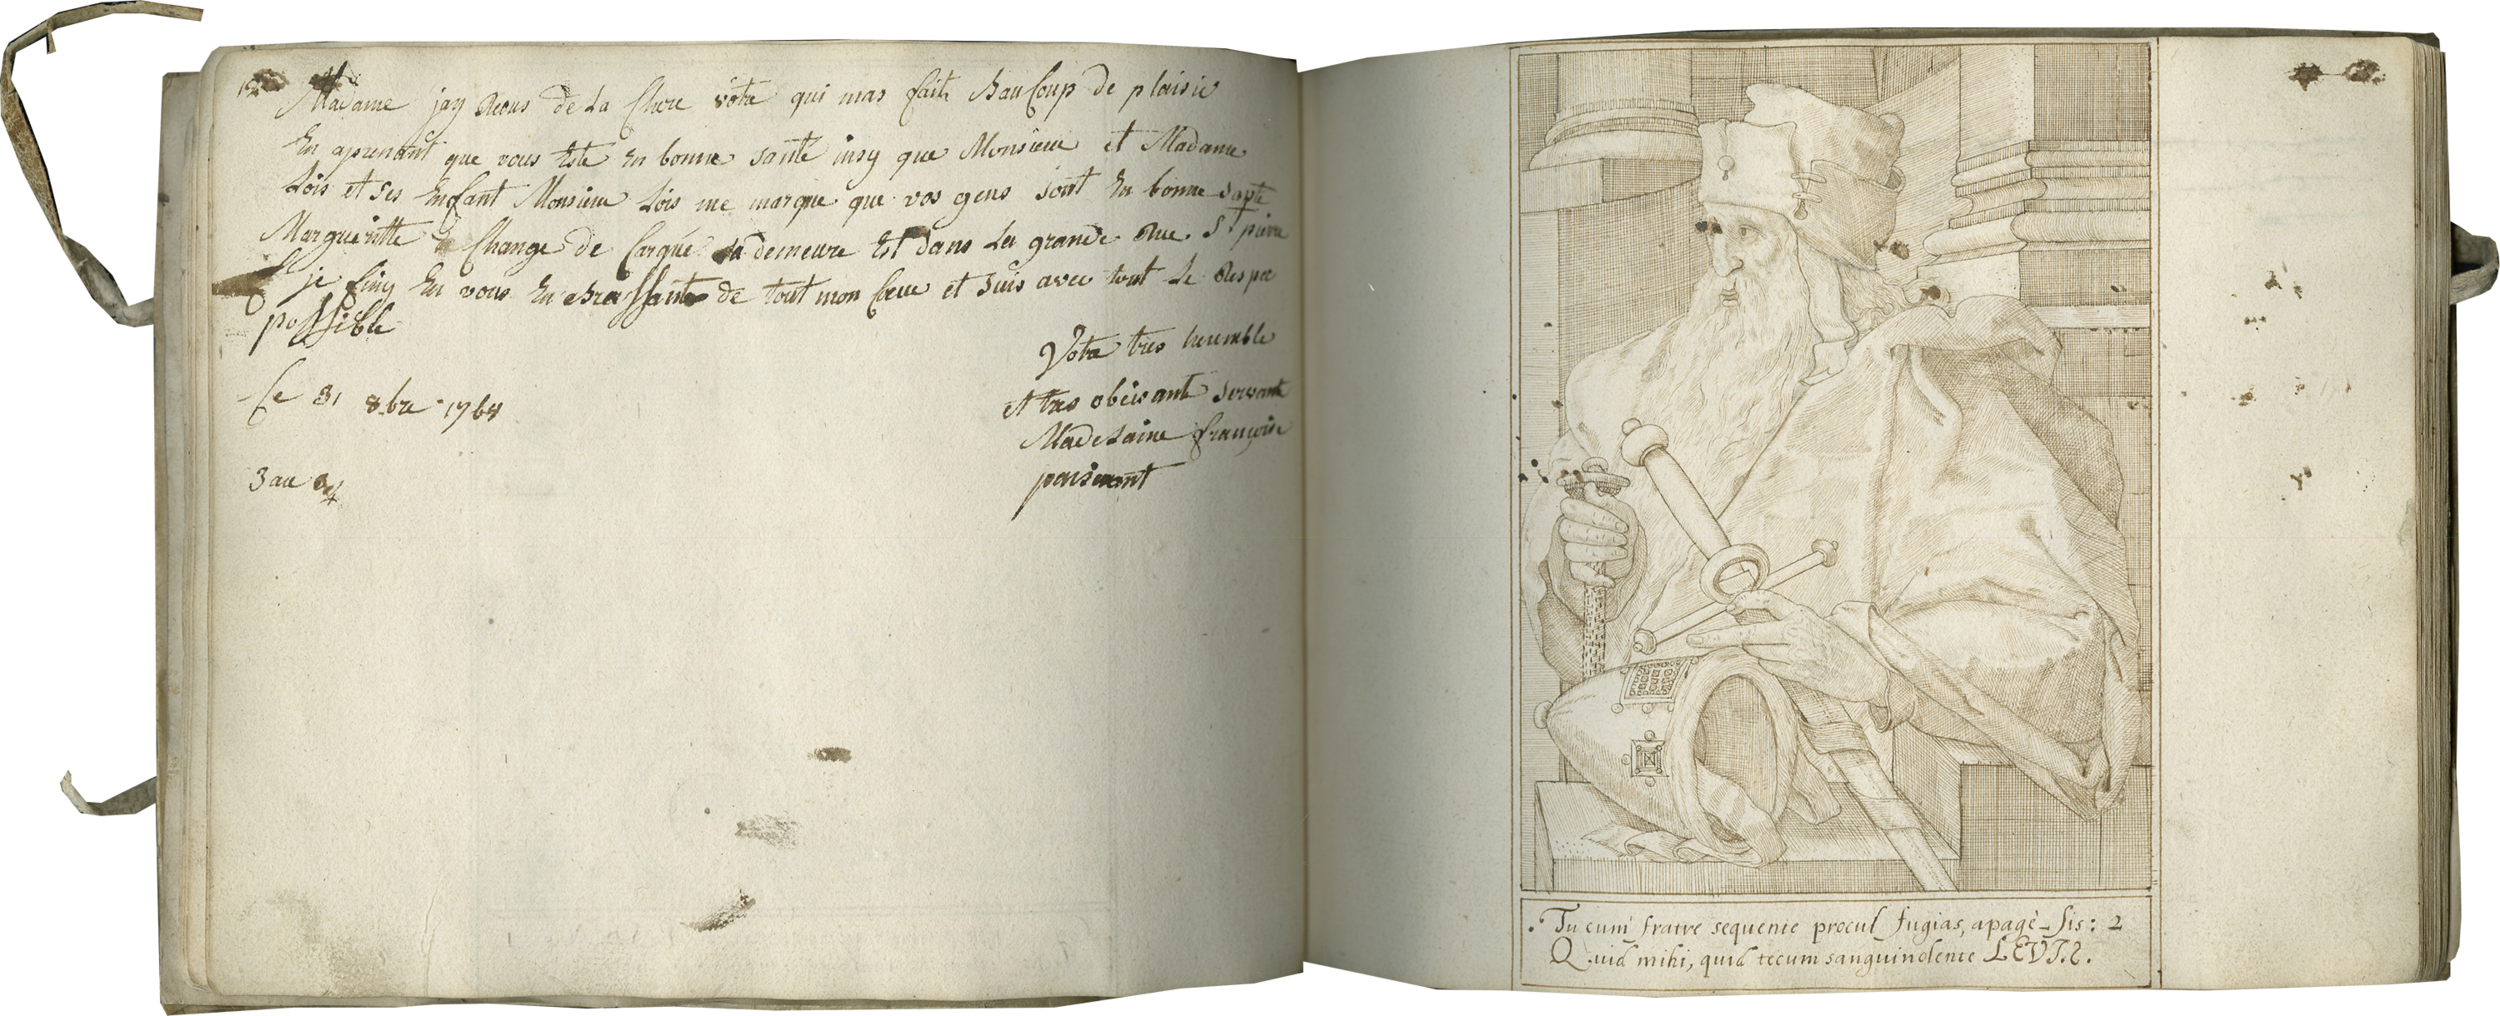 Madame jay Recus de La Chere votre qui mas fait Beaucoup de plaisir
En aprenant que vous Ete En bonne santé insy que Monsieur et Madame
Lois et ses Enfant Monsieur Lois me marque que vos gens sont En bonne sante
Margueritte Change de Carqué sa demeure Est dans La grande Rue St pierre
je finy En vous En Brassante de tout mon Cœur et suis avec tout Le Respec
possible
Votre tres heumble
Ce 31 8.bre 1764
et tres obeisante servante
Madelaine françoise
3 au
Tu cum fratre sequente procul fugias, apagè-sis: 2
Quid mihi, quid tecum sanguinolente LEVI.2.